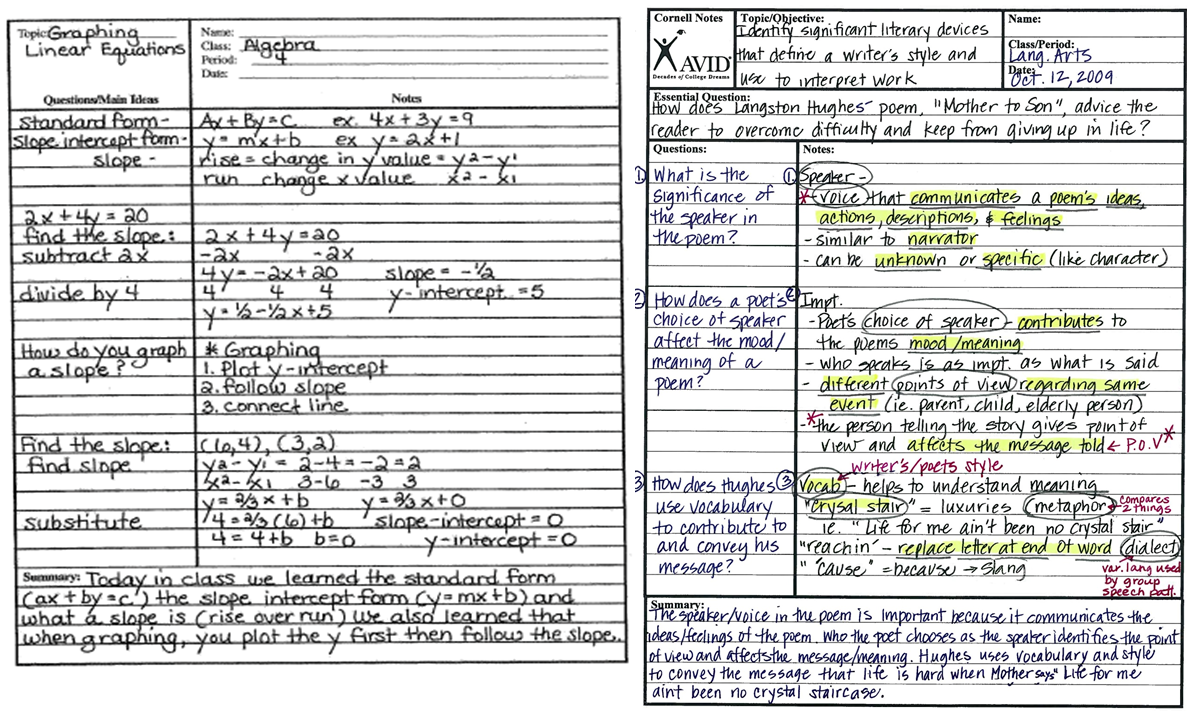 Topic: Graphing
Linear Equations
Name:
Class: Algebra
Period: 4
Date:
Questions/Main Ideas
Notes
Standard form-
Ax + By = c ex. 4x + 3y = 9
Slope intercept form-
y = mx + b ex y = 2x + 1
slope -
rise = change in y value = y2 - y1
run change x value x2 - x1
2x + 4y = 20
find the slope:
2x + 4y = 20
subtract 2x
-2x -2x
4y = -2x + 20 slope = -1/2
divide by 4
4 4 4 y-intercept = 5
y = 1/2 - 1/2x + 5
How do you graph
a slope?
* Graphing
1. Plot y-intercept
2. follow slope
3. connect line
Find the slope:
(6,4), (3,2)
find slope
y2 - y1 = 2-4 = -2 = 2
x2 - x1 3-6 -3 3
y = 2/3 x + b y = 2/3 x + 0
substitute
4 = 2/3 (6) + b slope-intercept = 0
4 = 4 + b b = 0 y-intercept = 0
Summary: Today in class we learned the standard form
(ax + by = c) the slope intercept form (y = mx + b) and
what a slope is (rise over run) We also learned that
when graphing, you plot the y first then follow the slope.
Cornell Notes
AVID
Decades of College Dreams
Topic/Objective:
Identify significant literary devices
that define a writer's style and
use to interpret work
Name:
Class/Period:
Lang. Arts
Date:
Oct. 12, 2009
Essential Question:
How does Langston Hughes' poem, "Mother to Son", advice the
reader to overcome difficulty and keep from giving up in life?
Questions:
Notes:
① What is the
significance of
the speaker in
the poem?
① Speaker -
* - voice that communicates a poem's ideas,
actions, descriptions, & feelings
- similar to narrator
- can be unknown or specific (like character)
② How does a poet's
choice of speaker
affect the mood/
meaning of a
poem?
② Impt.
- Poet's choice of speaker - contributes to
the poems mood/meaning
- who speaks is as impt. as what is said
- different points of view regarding same
event (ie. parent, child, elderly person)
- * the person telling the story gives point of
view and affects the message told ← P.O.V *
writer's/poets style
③ How does Hughes
use vocabulary
to contribute to
and convey his
message?
③ Vocab - helps to understand meaning
"crysal stair" = luxuries metaphor ← compares
2 things
ie. "Life for me ain't been no crystal stair"
"reachin' - replace letter at end of word dialect
" 'cause" = because → slang
var. lang used
by group
speech patt.
Summary:
The speaker/voice in the poem is important because it communicates the
ideas/feelings of the poem. Who the poet chooses as the speaker identifies the point
of view and affects the message/meaning. Hughes uses vocabulary and style
to convey the message that life is hard when Mother says "Life for me
aint been no crystal staircase.